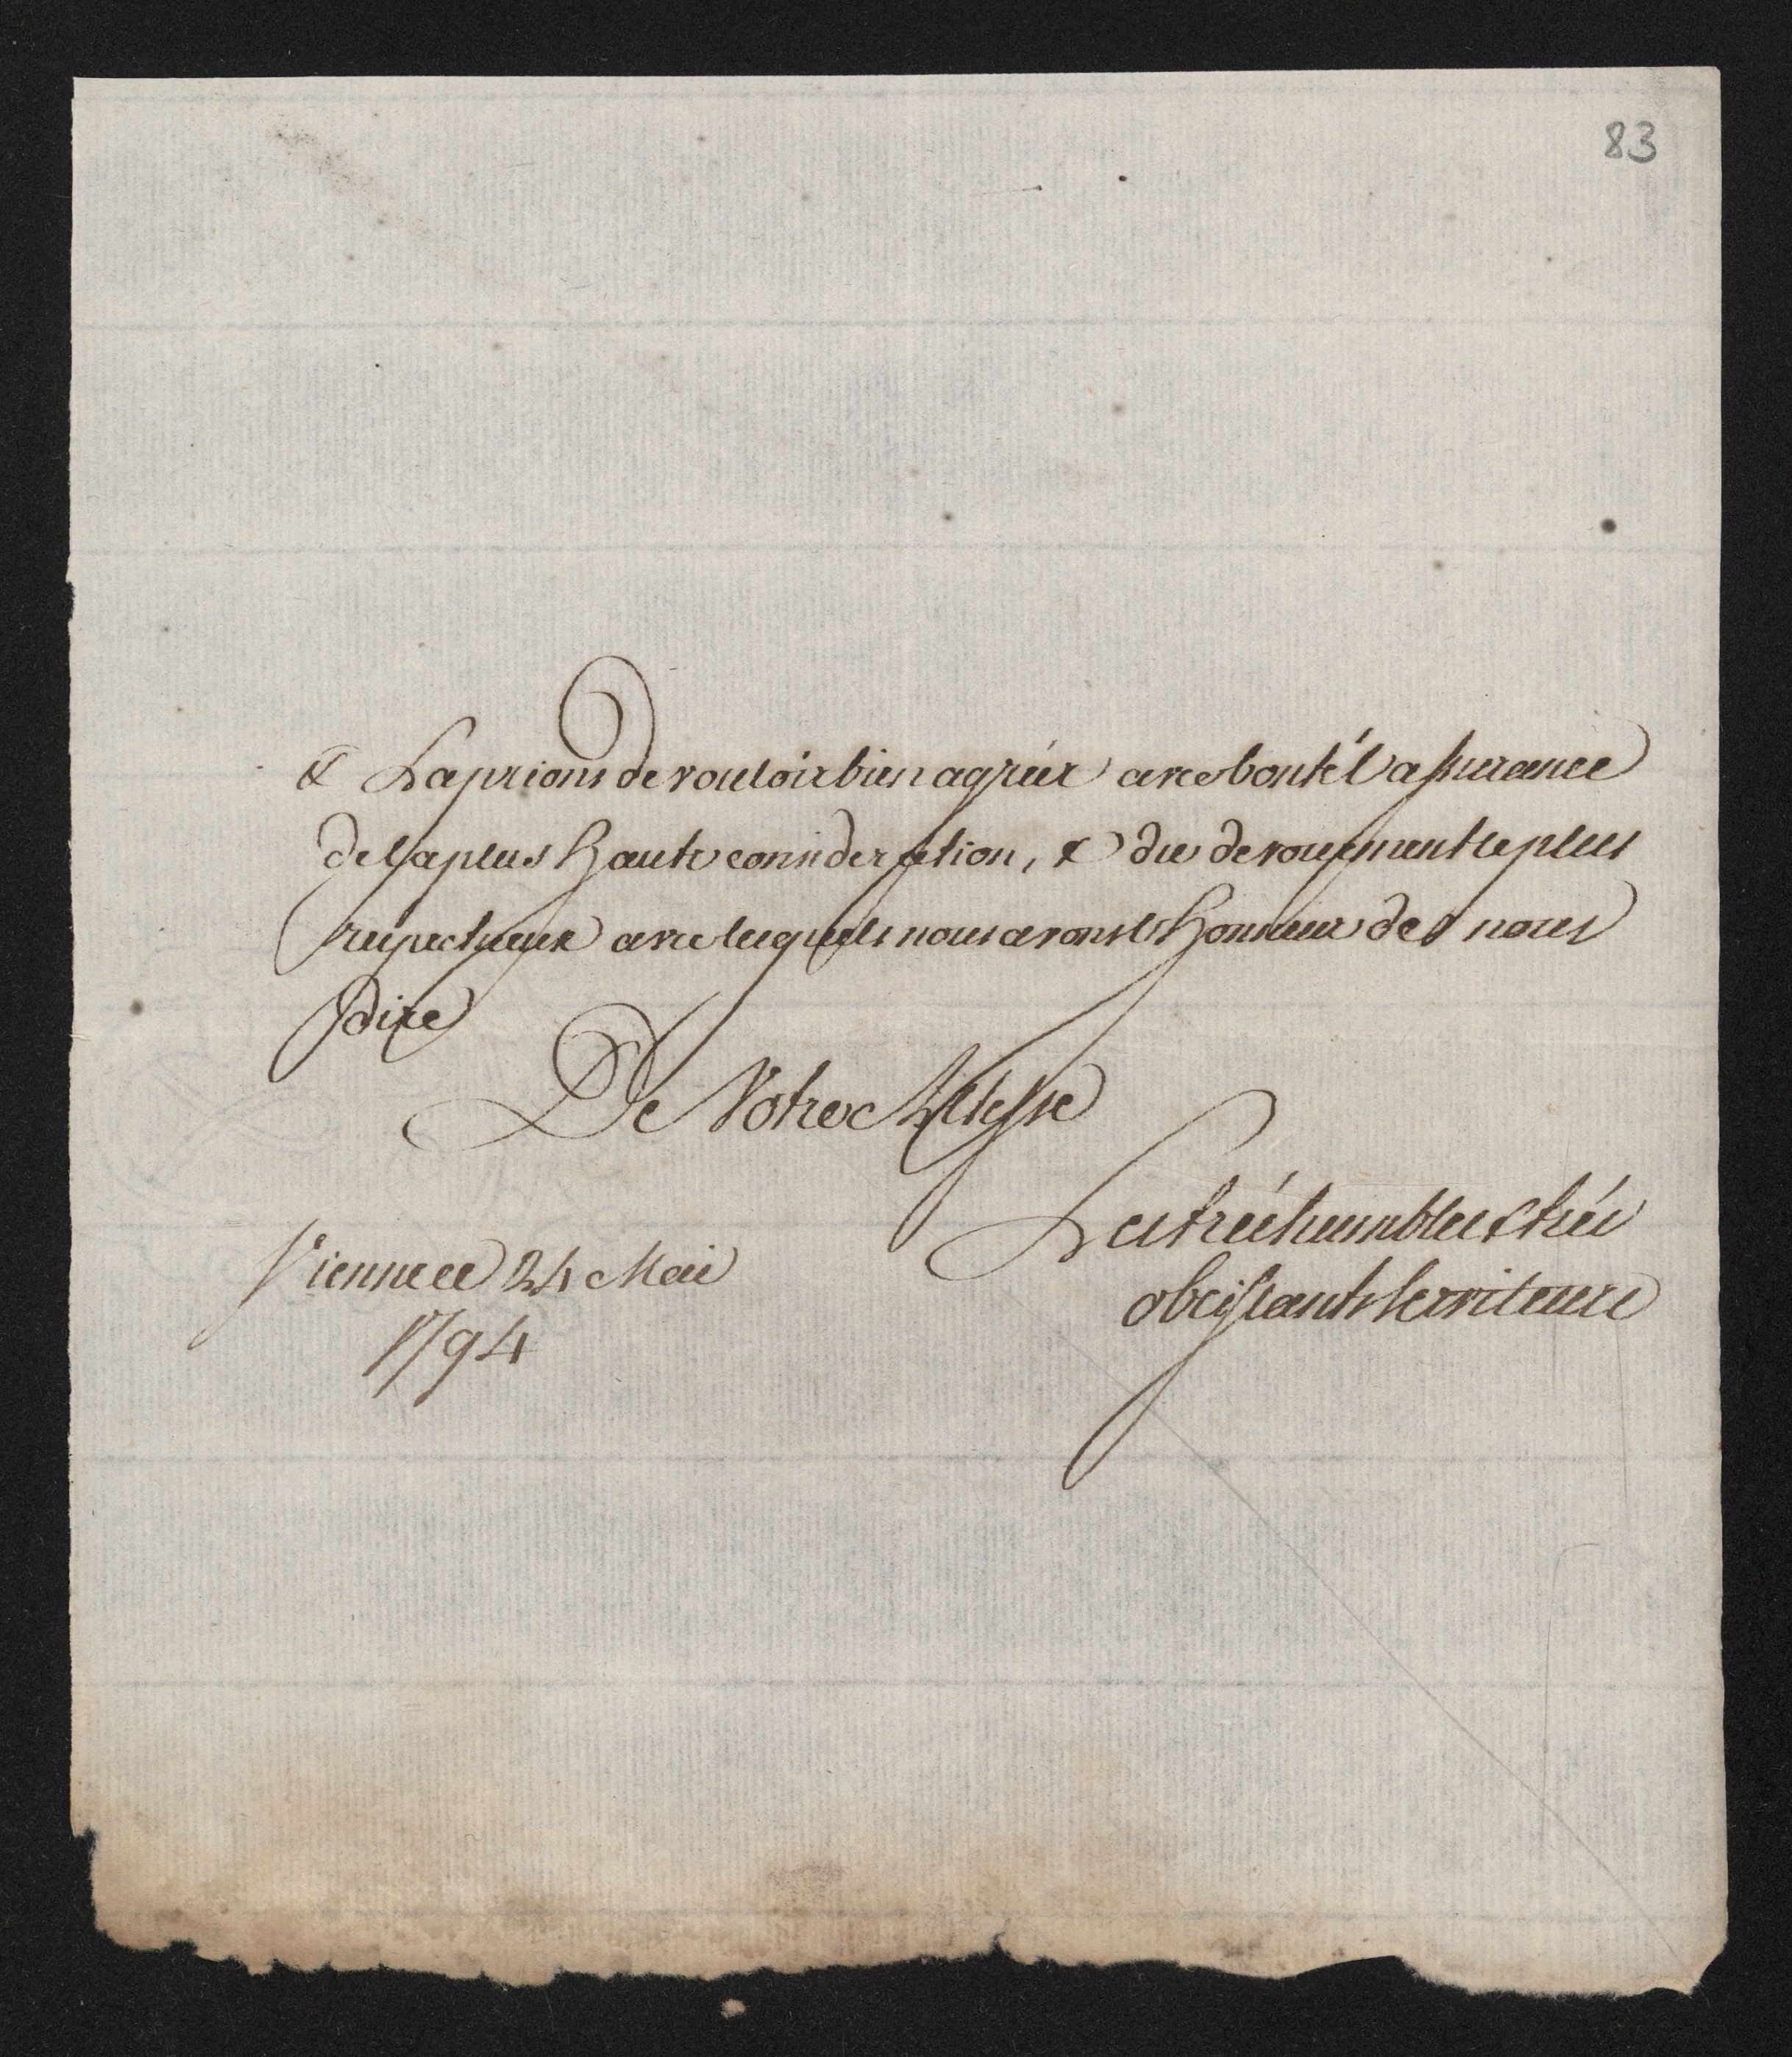 83
& La prions de vouloir bien agréér avec bonté l'assurance
de la plus haute consideration, & du devouement le plus
respectueux avec lesquels nous avons l'honneur de nous
dire
De Votre Altesse
Les trés humbles & trés
obeissants serviteurs
Vienne ce 24 Mai
1794